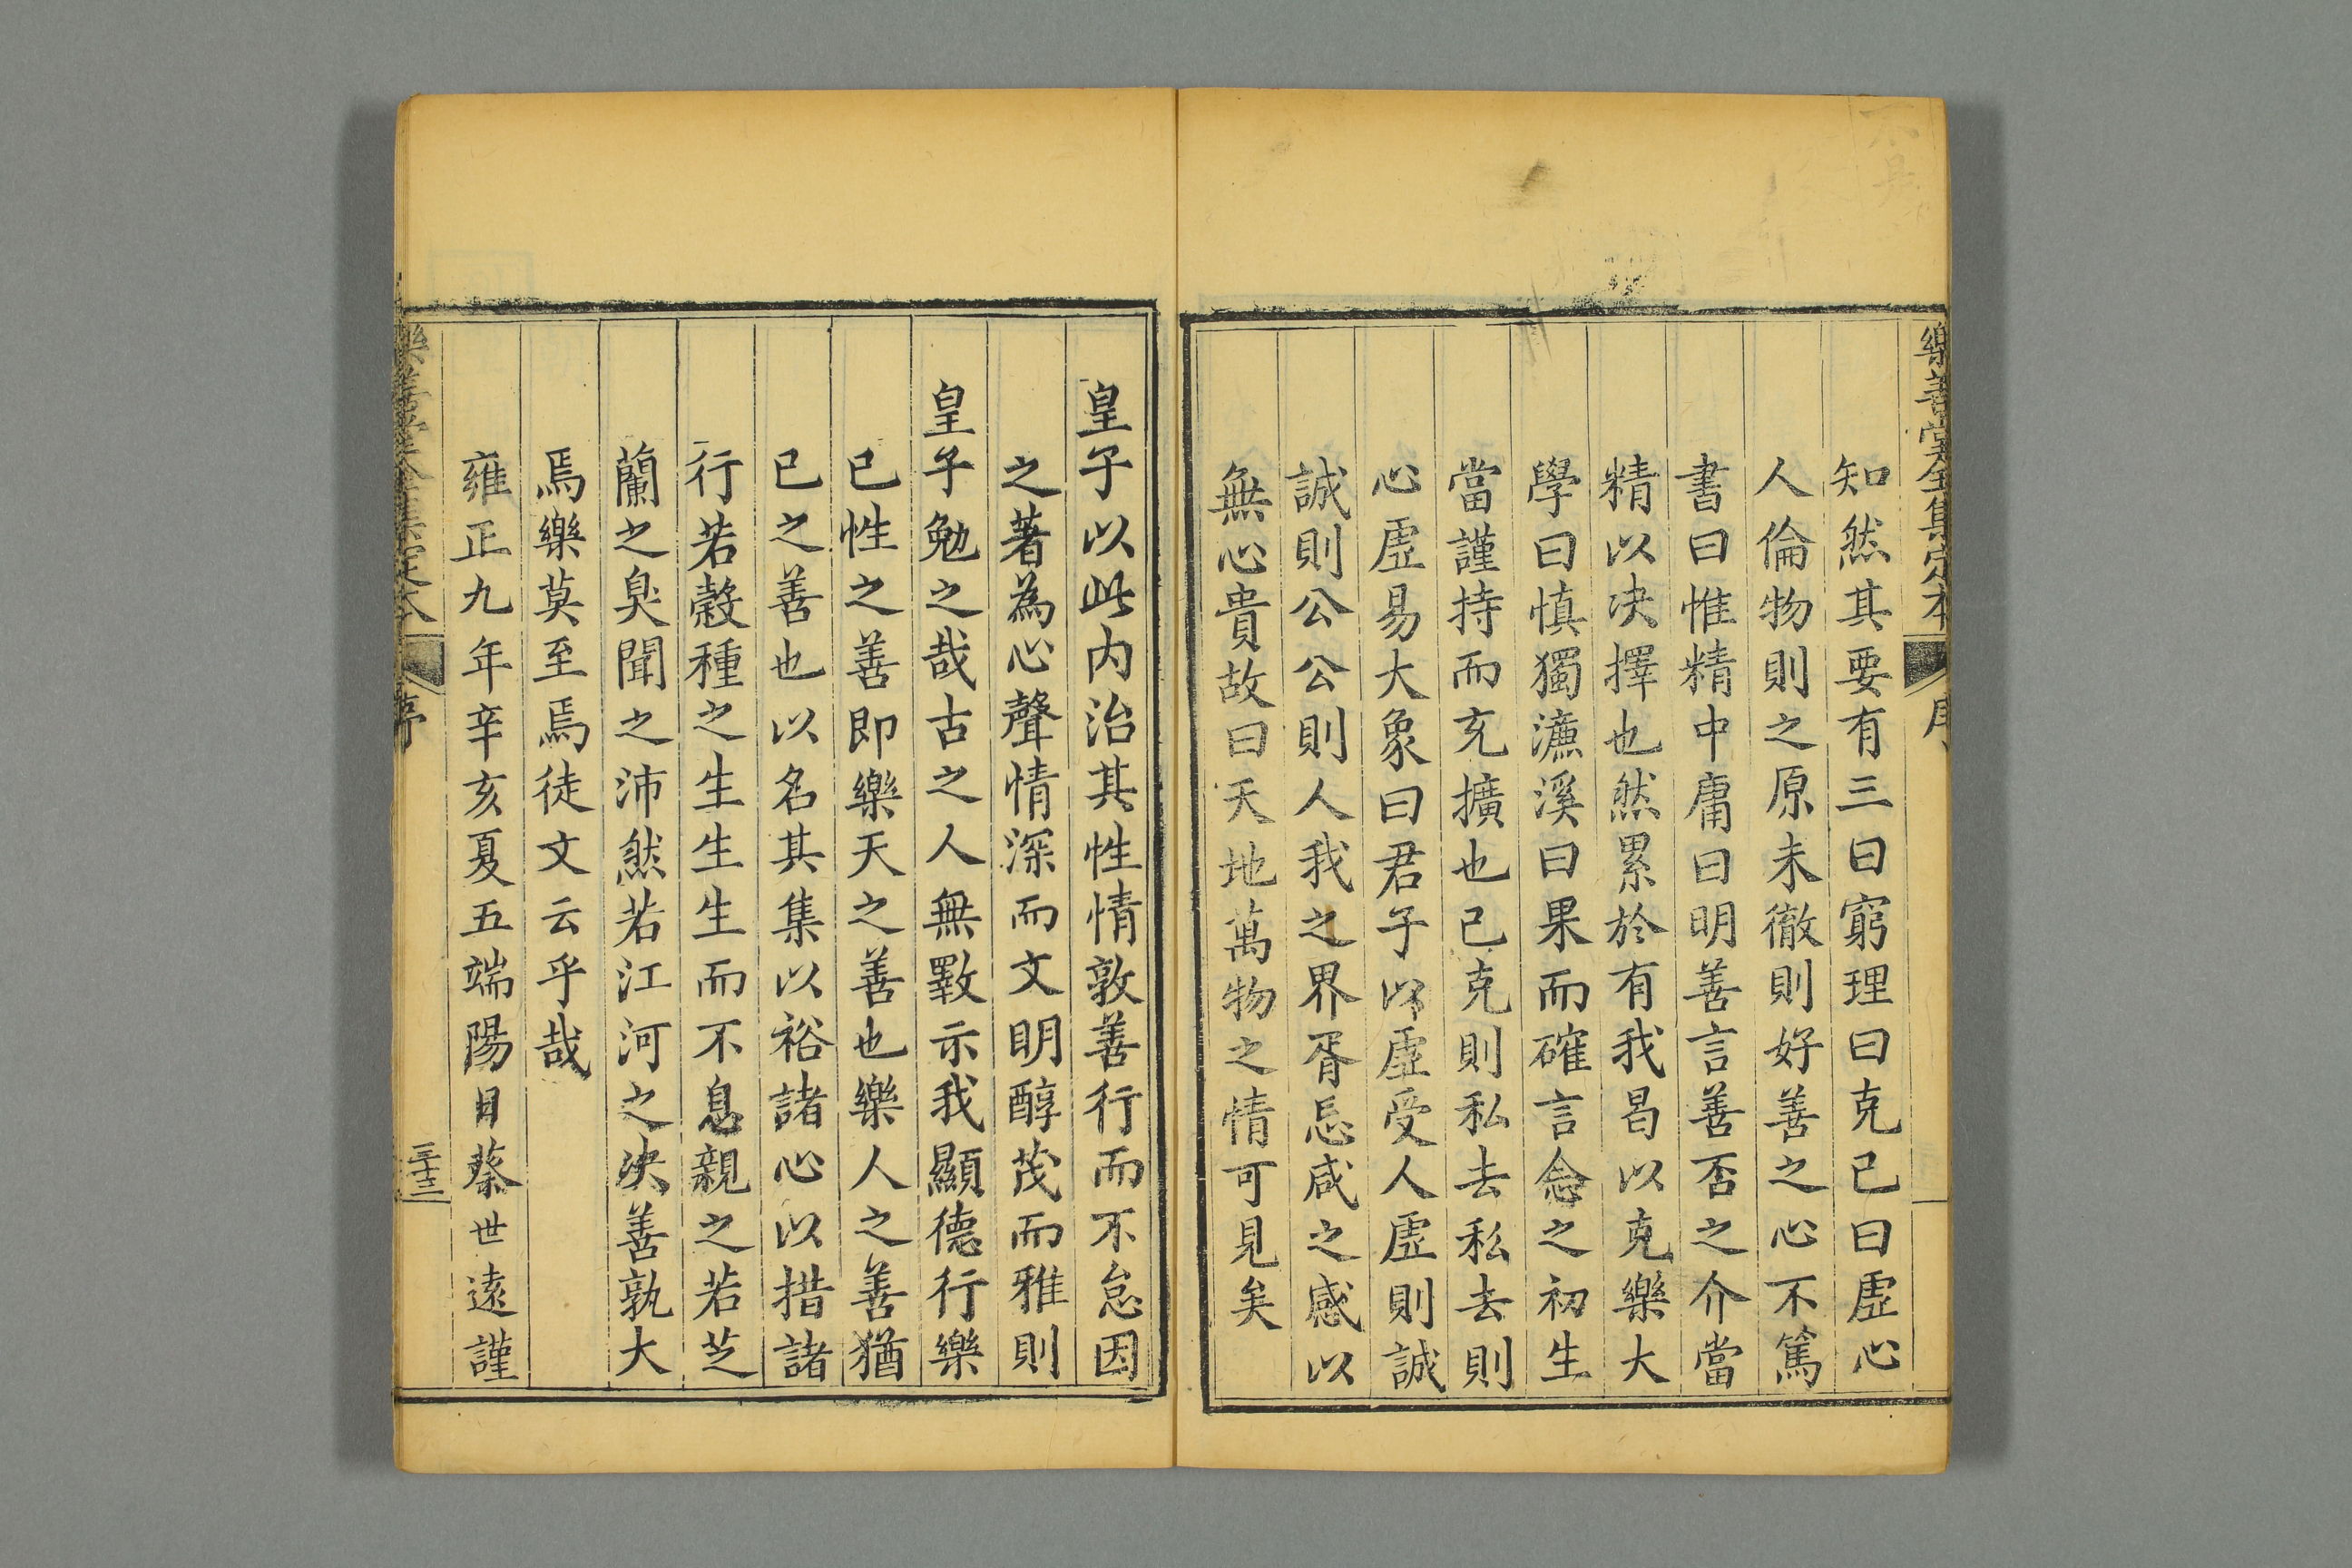 樂善堂全集定本
序
知然其要有三曰窮理曰克己曰虛心
人倫物則之原未徹則好善之心不篤
書曰惟精中庸曰明善言善否之介當
精以决擇也然累於有我曷以克樂大
學曰慎獨濂溪曰果而確言念之初生
當謹持而充擴也己克則私去私去則
心虛易大象曰君子以虛受人虛則誠
誠則公公則人我之界胥忘咸之感以
無心貴故曰天地萬物之情可見矣
皇子以此内治其性情敦善行而不怠因
之著為心聲情深而文明醇茂而雅則
皇子勉之哉古之人無斁示我顯德行樂
已性之善即樂天之善也樂人之善猶
已之善也以名其集以裕諸心以措諸
行若穀種之生生生而不息親之若芝
蘭之臭聞之沛然若江河之决善孰大
焉樂莫至焉徒文云乎哉
雍正九年辛亥夏五端陽日蔡世遠謹
樂善堂全集定本
序
三十三